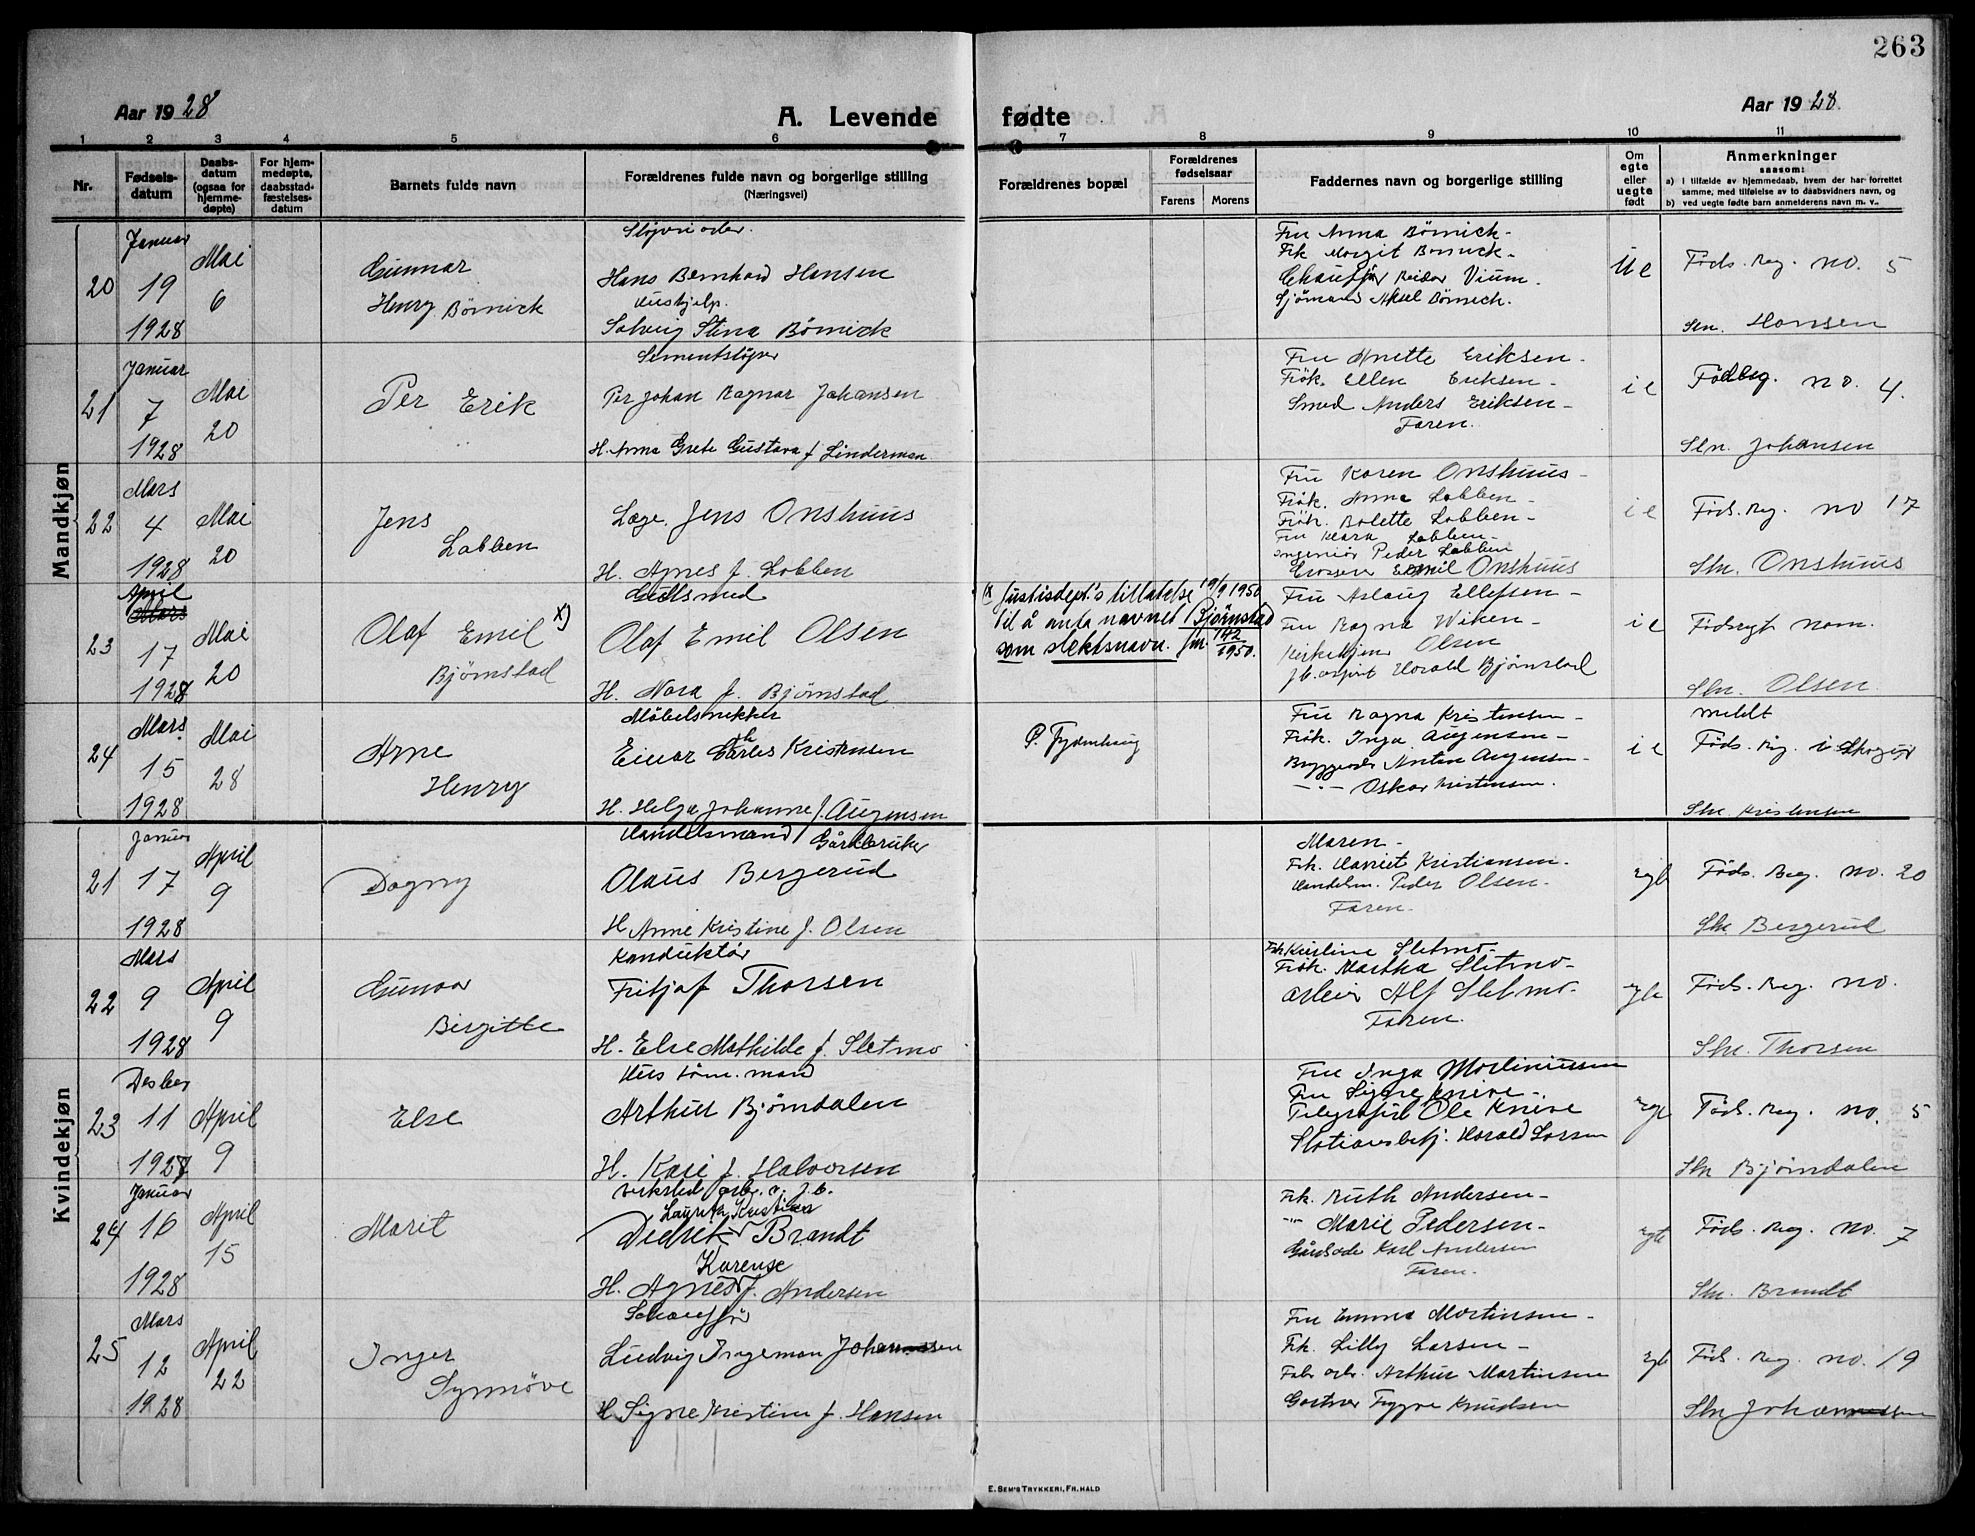 263
Aar 1928
A. Levende fødte
Aar 1928.
1 2 3 4 5 6 7 8 9 10 11
Nr.
Fødsels-
datum
Daabs-
datum
(ogsaa for
hjemme-
døpte)
For hjem-
medøpte,
daabsstad-
fæstelses-
datum
Barnets fulde navn
Forældrenes fulde navn og borgerlige stilling
(Næringsvei)
Forældrenes bopæl
Forældrenes
fødselsaar
Farens
Morens
Faddernes navn og borgerlige stilling
Om
egte
eller
uegte
født
Anmerkninger
saasom:
a) i tilfælde av hjemmedaab, hvem der har forrettet
samme, med tilføielse av to daabsvidners navn, og
b) ved uegte fødte barn anmelderens navn m. v..
Mandkjøn
20
Januar
19
1928
Mai
6
Gunnar
Henry Börnick
Hans Bernhard Hansen
Hushjelp.
Solveig Stina Börnick
Fru Anna Börnick -
Frk Margit Börnick -
Chauffør Reidar Vium -
Sjömand Aksel Börnick.
Ue
Föds. Reg. no. 5
Stn. Hansen
21
Januar
7
1928
Mai
20
Per Erik
Sementstöper
Per Johan Ragnar Johansen
H. Anna Grete Gustava f. Linderman
Fru Anette Eriksen -
Frök. Ellen Eriksen -
Smed Anders Eriksen -
Faren.
ie
no. 4.
Stn. Johansen
22
Mars
4
1928
Mai
20
Jens
Labben
Læge. Jens Onshuus
H. Agnes f. Labben
Fru Karen Onshuus -
Frök. Anna Labben -
Frök. Bolette Labben -
Fru Klara Labben -
Ingeniör Peder Labben
Emil Onshuus
ie
Föds. Reg. no 17
Stn. Onshuus
23
April
Mars
17
1928
Mai
20
Olaf Emil x)
Bjömstad
Gullsmed
Olaf Emil Olsen
H. Nora f. Bjömstad
x) Justisdept's tillatelse 19/9 1950
til å anta navnet Bjørnstad
som slektsnavn. Jnr. 142/1950.
Fru Aslaug Ellefsen -
Fru Ragna Wiken -
Kirketjener Olsen
Harald Bjömstad
ie
Stn. Olsen
24
Mars
15
1928
Mai
28
Arne
Henry
Möbelsnekker
Einar Charles Kristensen
H. Helga Johanne f. Augensen
Fru Ragna Kristensen -
Frök. Inga Augensen -
Anton Augensen -
- " - Oskar Kristensen.
ie
meldt
Föds. Reg. i Skoger
Stn. Kristensen
Kvindekjøn
21
Januar
17
1928
April
9
Dagny
Handelsmand Gårdbruker
Olaus Bergerud
H. Anne Kristine f. Olsen
Maren -
Frk. Harriet Kristiansen.
Handelm. Peder Olsen -
Faren.
egte
Föds. Reg. no. 20
Stn Bergerud
22
Mars
9
1928
April
9
Gunvor
Birgitte
Konduktör
Fritjof Thorsen
H. Else Mathilde f. Sletmo
Frk Kristine Sletmo -
Frök. Martha Sletmo -
Arbeider Alf Sletmo -
Faren.
egte
Föds. Reg. no.
Stn. Thorsen
23
Desber
11
1927
April
9
Else
Hus töm. mand
Arthur Bjömdalen
H. Kari f. Halvorsen
Fru Inga Martiniussen
Fru Signe Knive -
Telegrafist Ole Knive
Stationsbetj. Harald Larsen
egte
Föds. Reg. no. 5
Stn Bjömdalen
24
Januar
16
1928
April
15
Marit
Verksted arb. v. J.b.
Laurits Kristian
Diedrik Brandt
Karense
H. Agnes f. Andersen
Frk. Ruth Andersen -
- " - Marie Pedersen -
Karl Andersen
Faren.
egte
Föds. Reg. no. 7
Stn. Brandt
25
Mars
12
1928
April
22
Inger
Synnöve
Schauffør
Ludvig Ingeman Johannessen
H. Signe Kristine f. Hansen
Fru Emma Martinsen -
Frk. Lilly Larsen -
Fabr. arb. Arthur Martinsen
Gartner Trygve Knudsen
egte
Föds. Reg. no. 19
Stn Johannessen
E. SEM'S TRYKKERI, FR.HALD